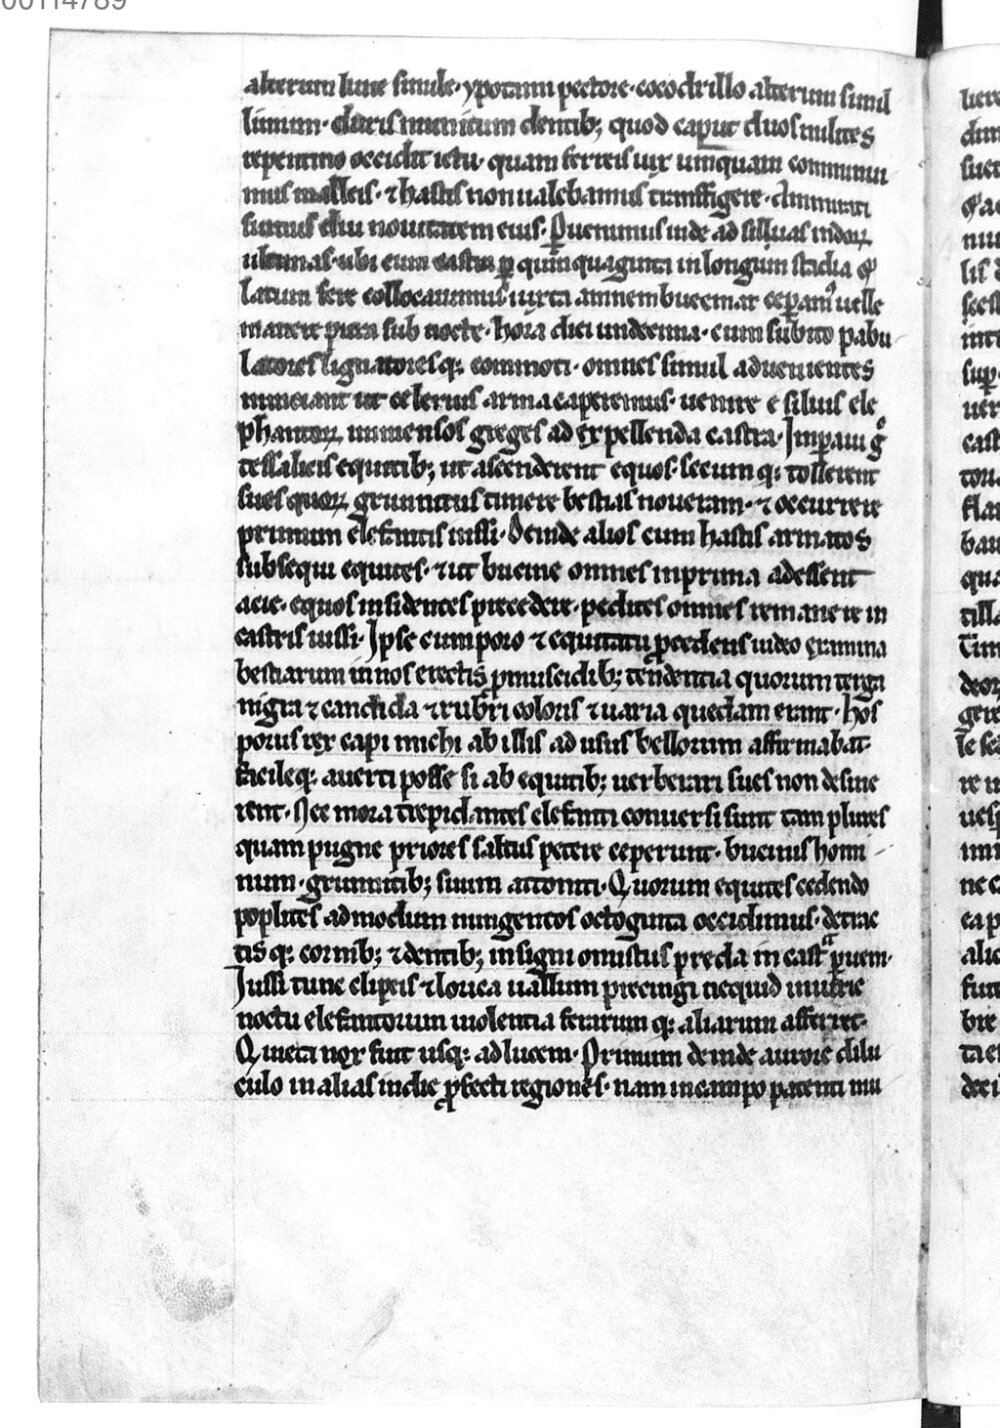 00114789
alterum lune simile· ypotami pectore· cocodrillo alterum simil
limum· duris munitum dentib; quod caput duos milites
repentino occidit ictu· quam ferreis uix umquam comminui
mus malleis· ⁊ hastis non ualebamus transfigere· Ammirati
sumus diu nouitatem eius· Peruenimus inde ad siluas indoꝝ
ultimas· ubi cum castra ꝑ quinquaginta in longum stadia ⁊
latum fere collocauimus iuxta amnem buemar ceperamꝰ uelle
manere pura sub nocte· hora diei undecima· cum subito pabu
latores lignatoresqꝫ commoti· omnes simul aduenientes
nunciant ut celerius arma caperemus· uenire e siluis ele
phantoꝝ inmensos greges ad expellenda castra· Imꝑaui gͦ
tessalicis equitib; ut ascenderent equos· secumqꝫ tollerent
sues quoꝝ grunnitus timere bestias noueram· ⁊ occurrere
primum elefantis iussi· Deinde alios cum hastis armatos
subsequi equites· ⁊ ut bucine omnes in prima adessent
acie· equos insidentes precedere· pedites omnes remanere in
castris iussi· Ipse cum poro ⁊ equitatu ꝓcedens uideo examina
bestiarum in nos erectis ꝓmuscidib; tendentia quorum terga
nigra ⁊ candida ⁊ rubri coloris ⁊ uaria quedam erant· hos
porus rex capi michi ab illis ad usus bellorum affirmabat·
facileqꝫ auerti posse si ab equitib; uerberari sues non desine
rent· Nec mora trepidantes elefanti conuersi sunt tam plures
quam pugne priores saltus petere ceperunt· bucinis homi
num· grunnitib; suum attoniti· Quorum equites cedendo
poplites· admodum nungentos octoginta occidimus· detrac
tisqꝫ cornib; ⁊ dentib; insigni onustus preda in castra ꝑueni·
Iussi tunc clipeis ⁊ lorica uallum precingi ne quid iniurie
noctu elefantorum uiolentia ferarumqꝫ aliarum afferret·
Quieta nox fuit usqꝫ ad lucem· Primum deinde aurore dilu
culo in alias indie ꝓfecti regiones· nam in campo patenti mu